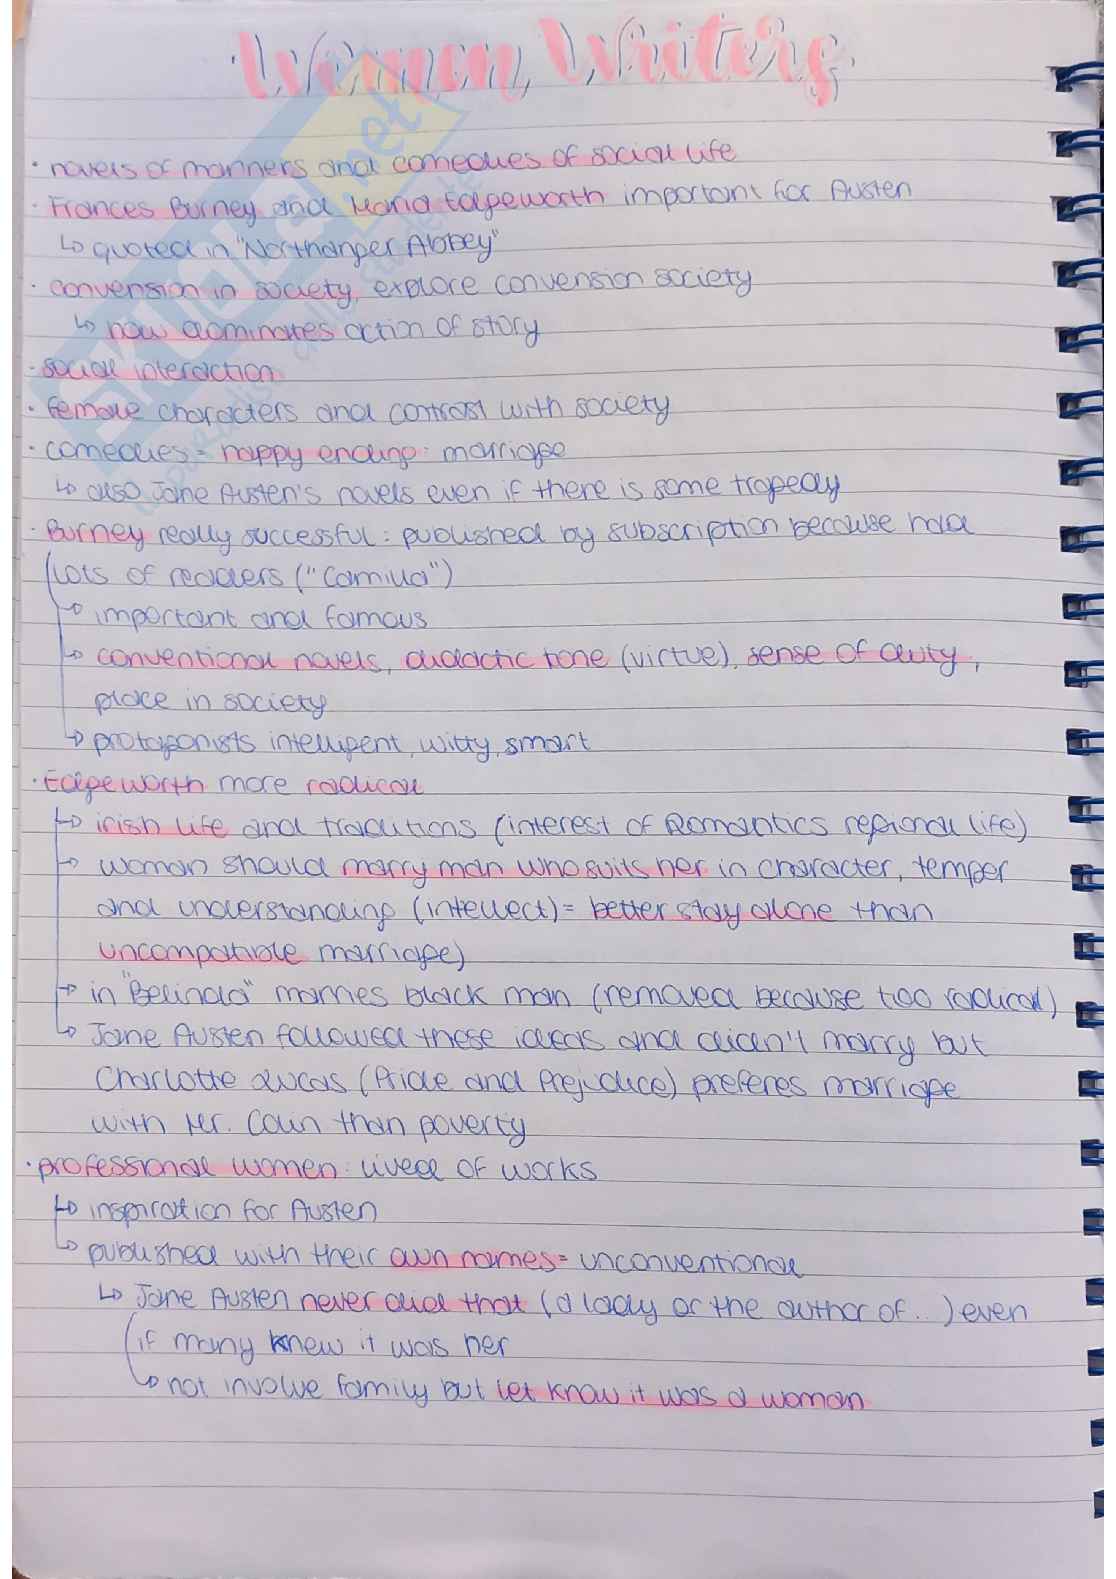 Women Writers
· novels of manners and comedies of social life
· Frances Burney and Maria Edgeworth important for Austen
↳ quoted in "Northanger Abbey"
· convension in society, explore convension society
↳ now dominates action of story
· social interaction
· female characters and contrast with society
· comedies = happy ending: marriage
↳ also Jane Austen's novels even if there is some tragedy
· Burney really successful: published by subscription because had
lots of readers ("Camilla")
↳ important and famous
↳ conventional novels, didactic tone (virtue), sense of duty,
place in society
↳ protagonists intelligent, witty, smart
· Edgeworth more radical
↳ irish life and traditions (interest of Romantics regional life)
↳ woman should marry man who suits her in character, temper
and understanding (intellect) = better stay alone than
uncompatible marriage)
↳ in "Belinda" marries black man (removed because too radical)
↳ Jane Austen followed these ideas and didn't marry but
Charlotte Lucas (Pride and Prejudice) preferes marriage
with Mr. Collin than poverty
· professional women: lived of works
↳ inspiration for Austen
↳ published with their own names = unconventional
↳ Jane Austen never did that (a lady or the author of...) even
if many knew it was her
↳ not involve family but let know it was a woman
SKUOLA.net